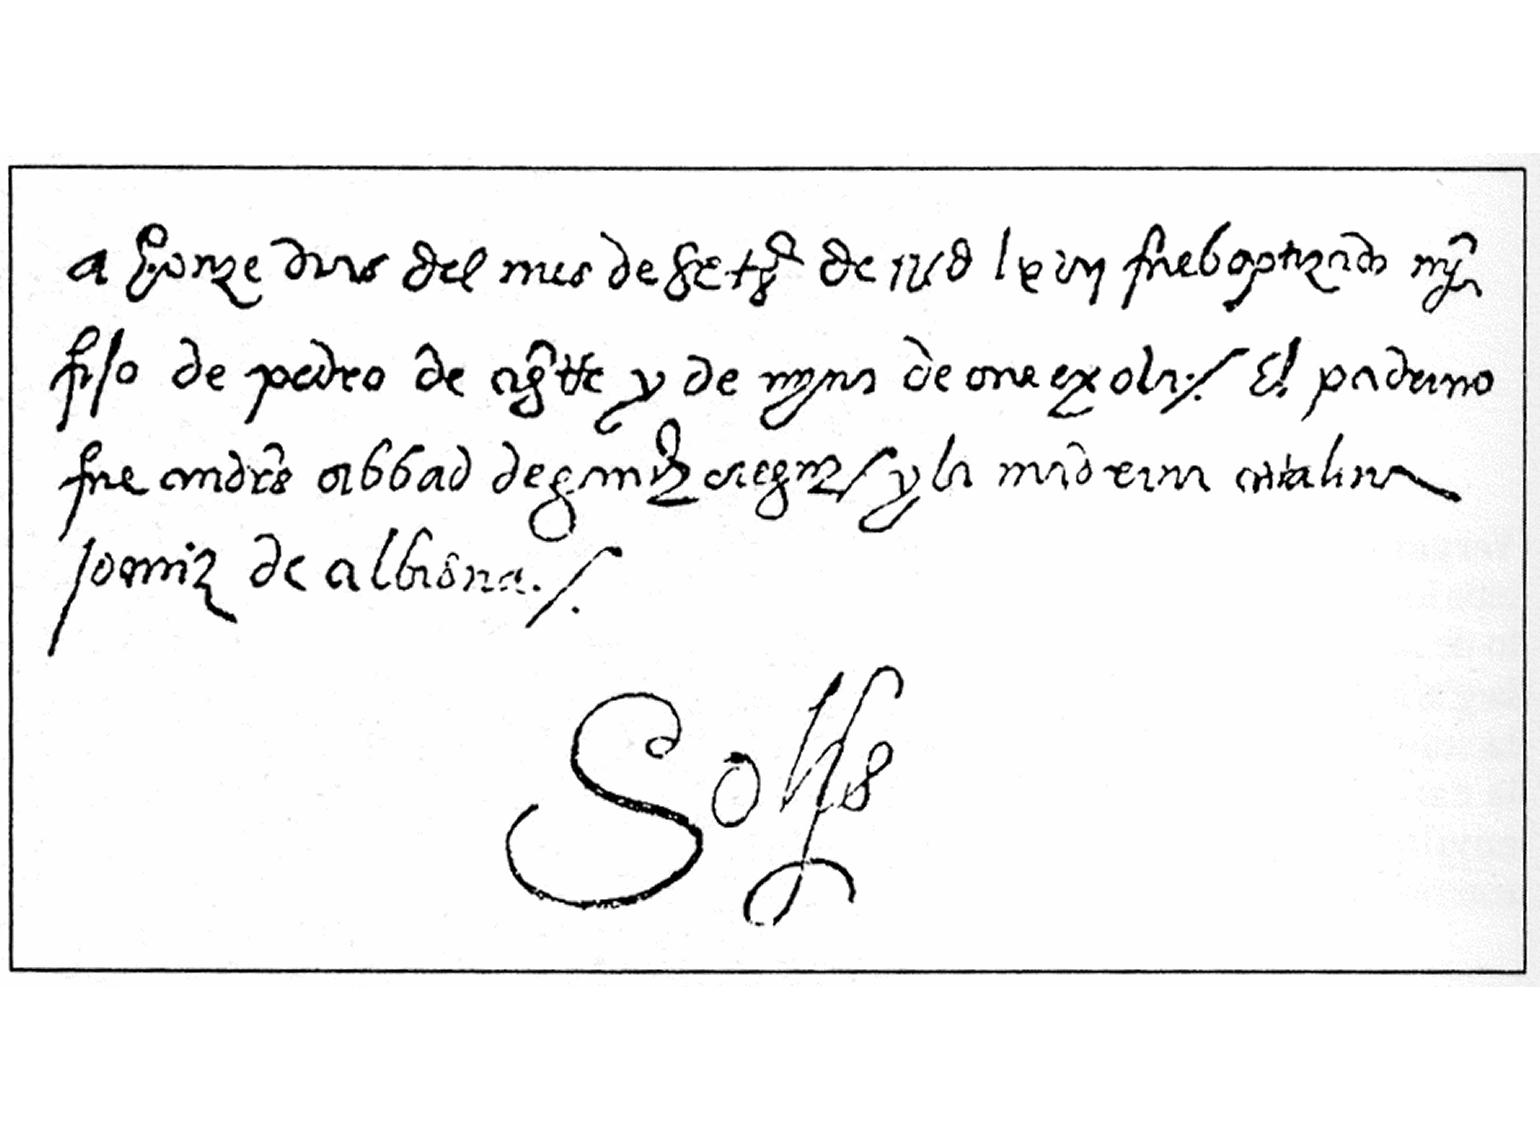 a honze dias del mes de setẽ de 1UD lxiiij fue baptizado mjn
fijo de pedro de agŕre y de mjna de oneexola ./ El padrino
fue andrés abbad de gamiz ./ y la madrina catalina
saemiz de albiona ./.
Solis